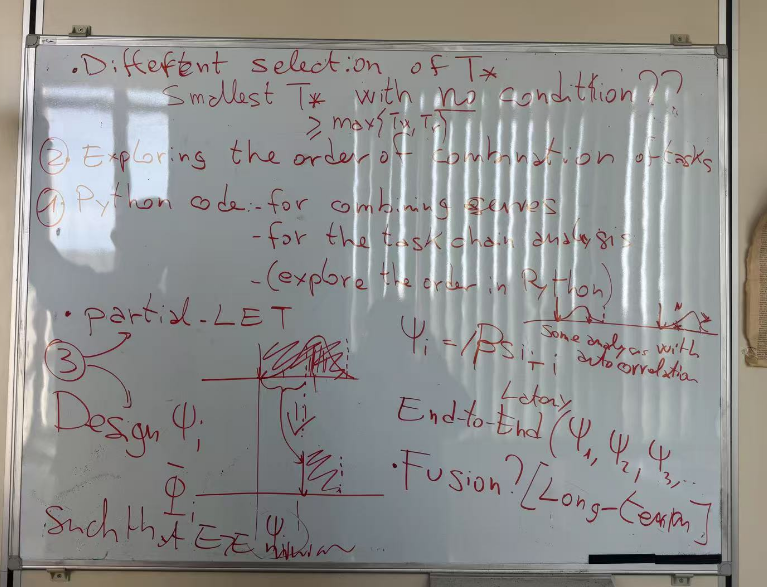 • Different selection of T*
Smallest T* with no condition??
≥ max(Tx, T
② Exploring the order of combination of tasks
① Python code: - for combining curves
- for the task chain analysis
- (explore the order in Python)
• partial-LET
③
Design Ψi
Φ̄
Such that E2E Ψ
Ψi = /Psi_i
Some analysis with
autocorrelation
Latency
End-to-End (Ψ1, Ψ2, Ψ3, ..
• Fusion? [Long-term]